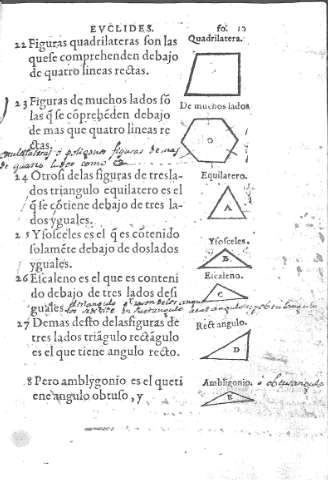 EVCLIDES. fo. 12
22 Figuras quadrilateras son las
queſe comprehenden debajo
de quatro lineas rectas.
Quadrilatera.
23 Figuras de muchos lados ſõ
las q̃ ſe cõprehẽden debajo
de mas que quatro lineas re
ctas.
De muchos lados
o poligonas figuras de mas
de quatro lados como
24 Otroſi de las figuras de tresla-
dos triangulo equilatero es el
q̃ ſe cõtiene debajo de tres la-
dos yguales.
Equilatero.
A
25 Yſoſceles es el q̃ es cõtenido
ſolamẽte debajo de doslados
yguales.
Yſoſceles.
B
26 Eſcaleno es el que es conteni
do debajo de tres lados deſi
guales.
Eſcaleno.
C
27 Demas deſto delasfiguras de
tres lados triãgulo rectãgulo
es el que tiene angulo recto.
Rectangulo.
D
8 Pero amblygonio es el queti
ene angulo obtuſo, y
Ambligonio. o obtusangulo
E